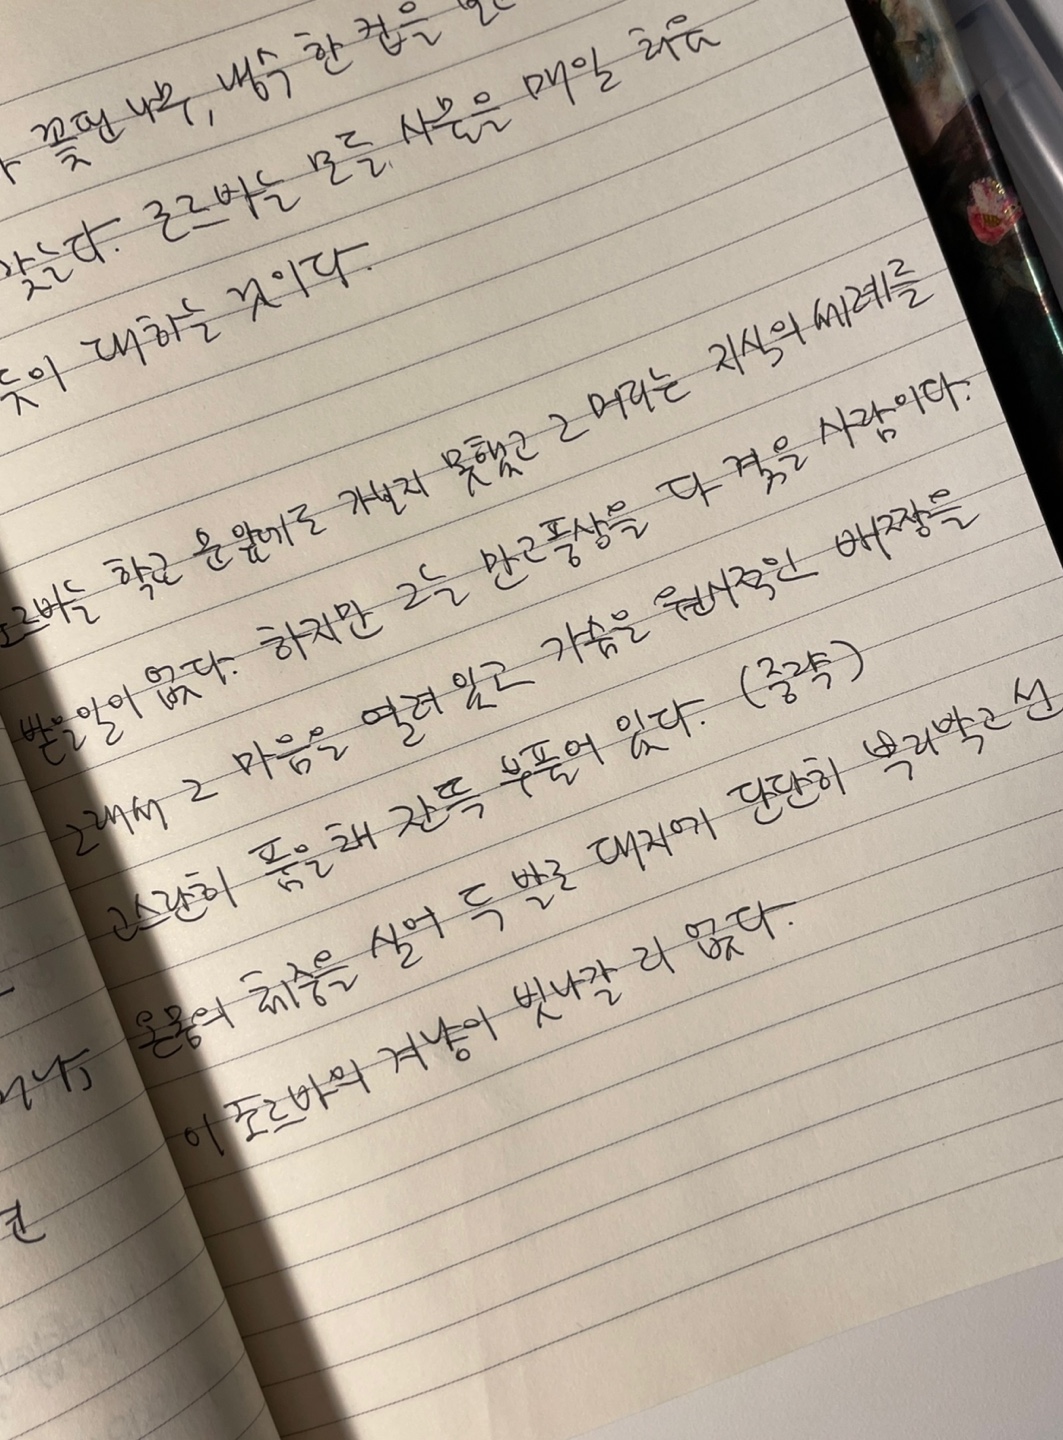 꽃핀 나무, 냉수 한 컵을
맞는다. 조르바는 모든 사물을 매일 처음
듯이 대하는 것이다.
조르바는 학교 문앞에도 가보지 못했고 그 머리는 지식의 세례를
받은일이 없다. 하지만 그는 만고풍상을 다 겪은 사람이다.
그래서 그 마음은 열려 있고 가슴은 원시적인 배짱을
고스란히 품은채 잔뜩 부풀어 있다. (중략)
온몸의 체중을 실어 두 발로 대지에 단단히 뿌리박고 선
이 조르바의 겨냥이 빗나갈 리 없다.